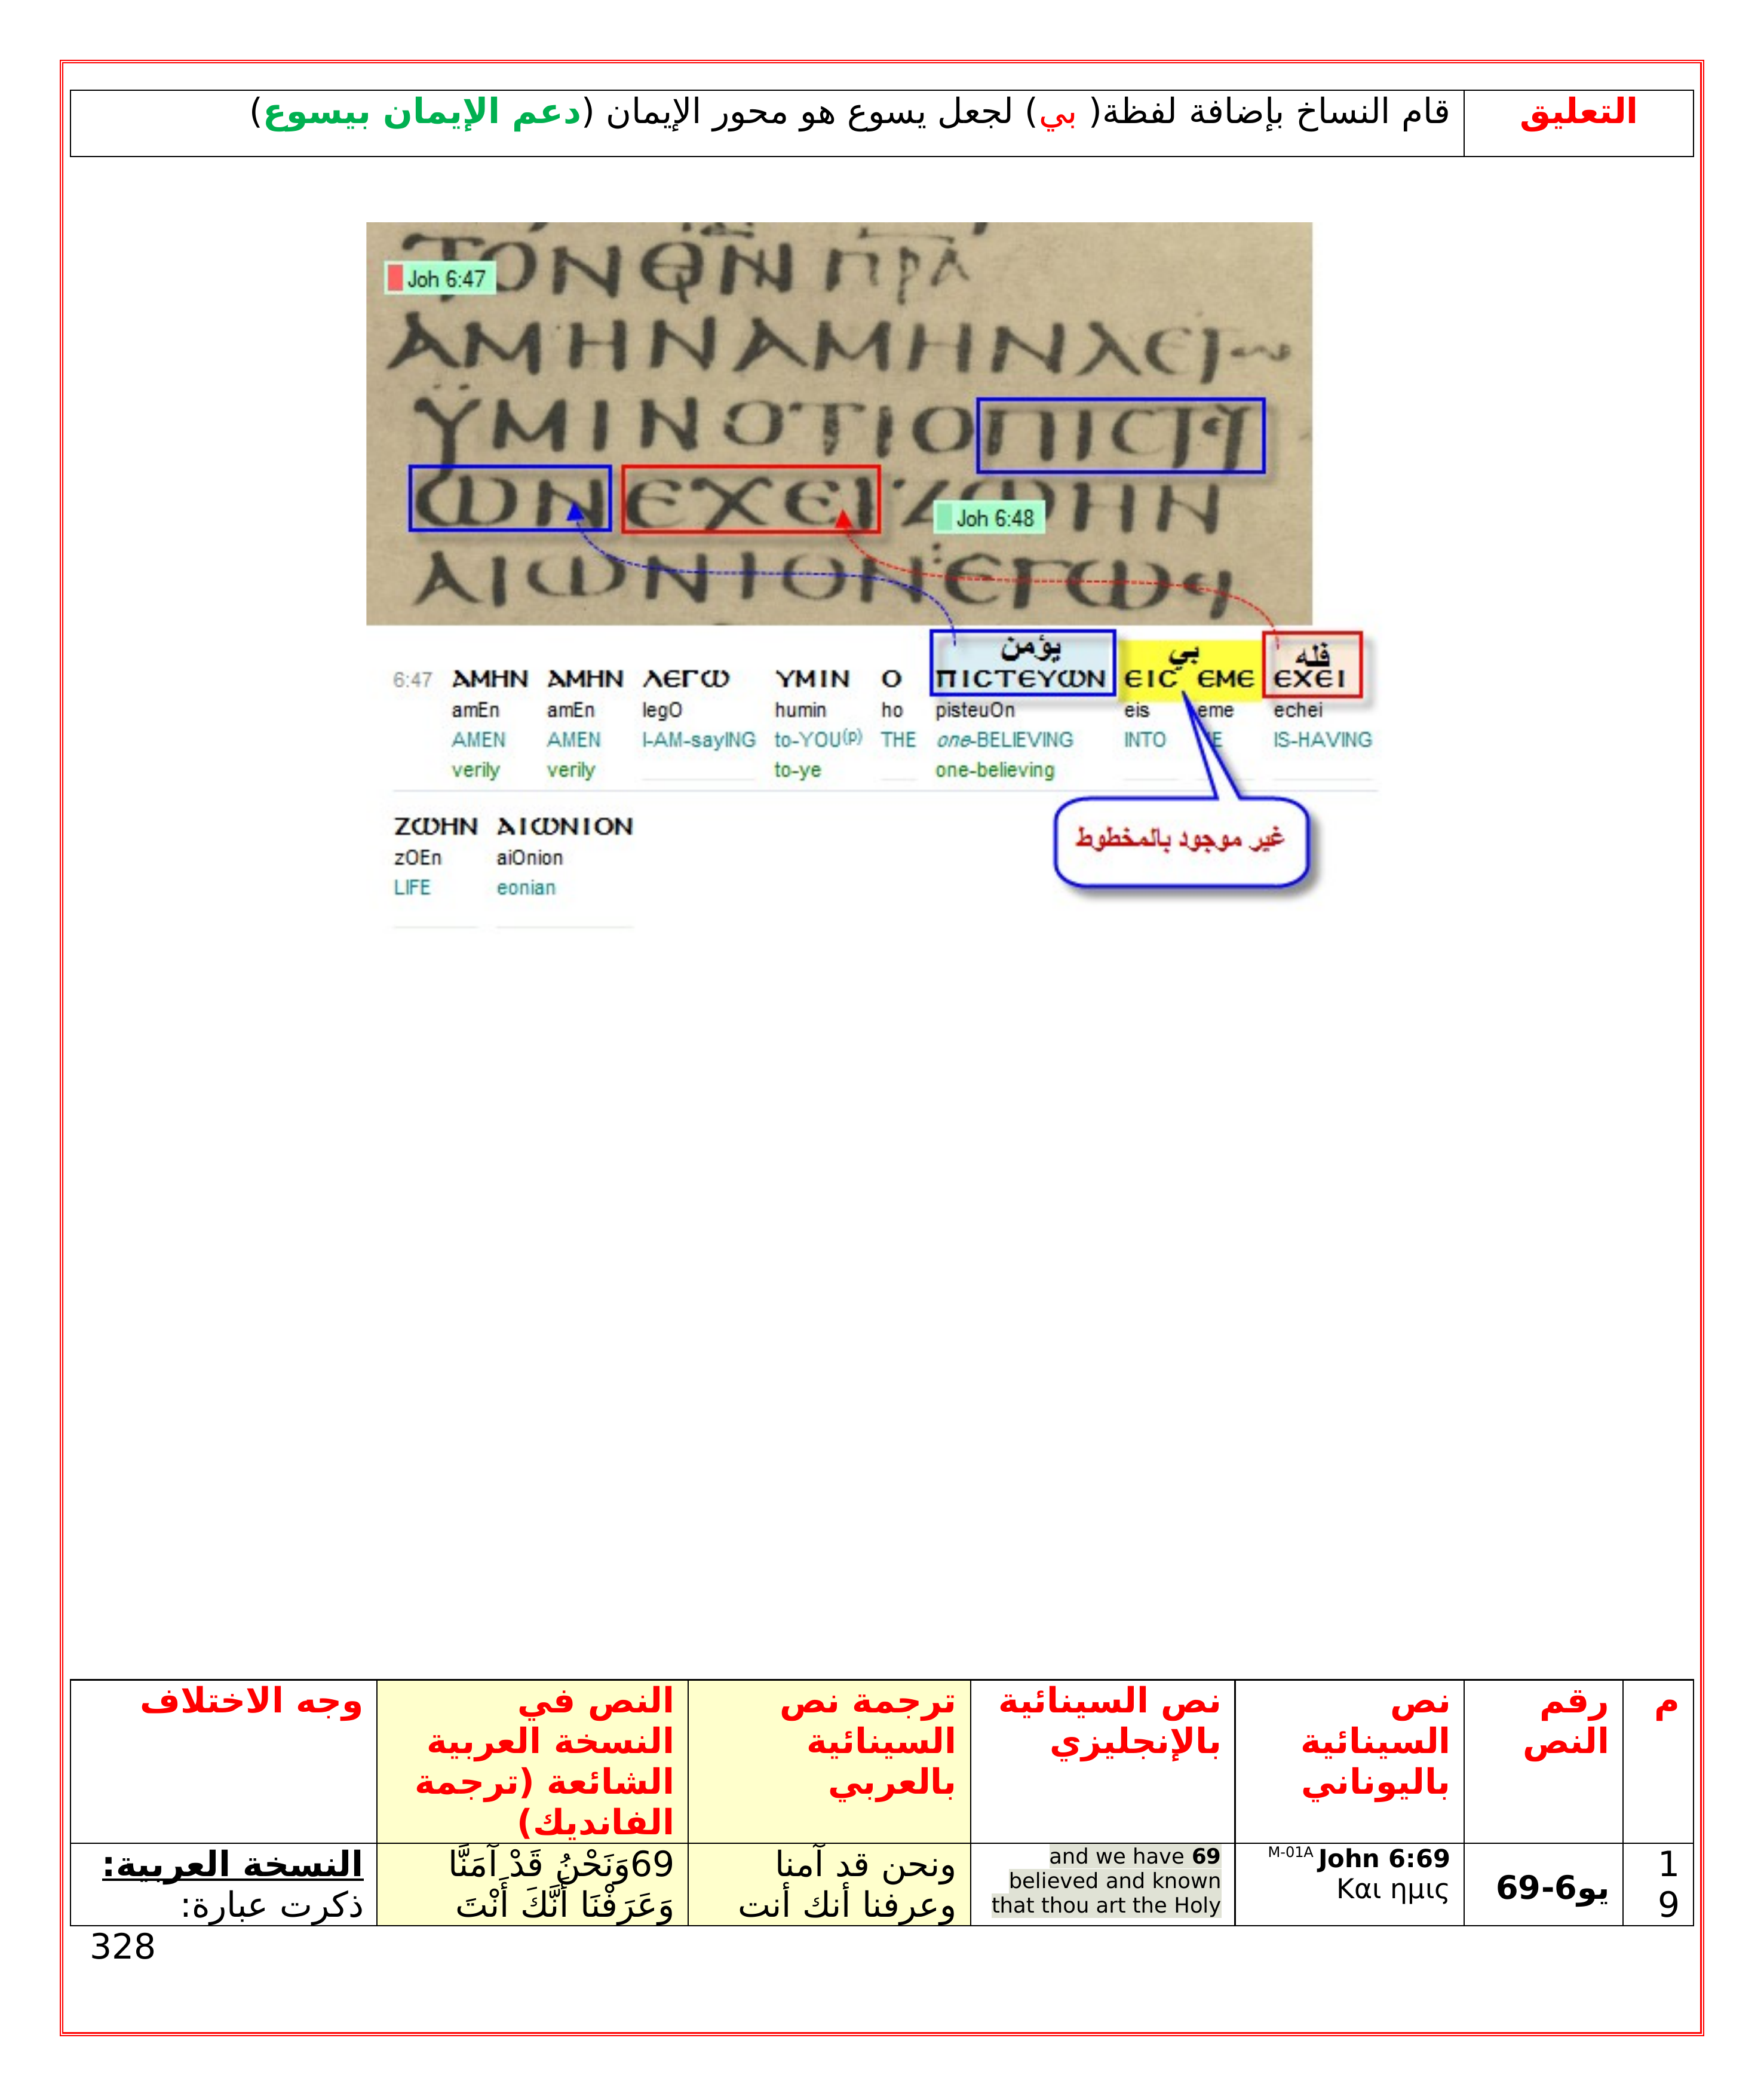 التعليق
قام النساخ بإضافة لفظة( بي) لجعل يسوع هو محور الإيمان (دعم الإيمان بيسوع)
ΤΟΝΘΝ ΠΡΑ
Joh 6:47
ΑΜΗΝΑΜΗΝΛΕΓω
ΫΜΙΝΟΤΙΟΠΙCΤΕΥ
ωΝΕΧΕΙΖωΗΝ
Joh 6:48
ΑΙωΝΙΟΝΕΓω
يؤمن بي فله
6:47 ΑΜΗΝ ΑΜΗΝ ΛΕΓω ΥΜΙΝ Ο ΠΙCΤΕΥωΝ ΕΙC ΕΜΕ ΕΧΕΙ
amEn amEn legO humin ho pisteuOn eis eme echei
AMEN AMEN I-AM-sayING to-YOU(p) THE one-BELIEVING INTO IS-HAVING
verily verily to-ye one-believing
غير موجود بالمخطوط
ΖωΗΝ ΑΙωΝΙΟΝ
zOEn aiOnion
LIFE eonian
م
رقم
النص
نص
السينائية
باليوناني
نص السينائية
بالإنجليزي
ترجمة نص
السينائية
بالعربي
النص في
النسخة العربية
الشائعة (ترجمة
الفانديك)
وجه الاختلاف
1
9
يو6-69
M-01A John 6:69
Και ημις
69 and we have
believed and known
that thou art the Holy
ونحن قد آمنا
وعرفنا أنك أنت
69وَنَحْنُ قَدْ آمَنَّا
وَعَرَفْنَا أَنَّكَ أَنْتَ
النسخة العربية:
ذكرت عبارة:
328